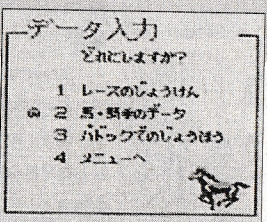 データ入力
どれにしますか?
1 レースのじょうけん
2 馬・騎手のデータ
3 パドックでのじょうほう
4 メニューへ